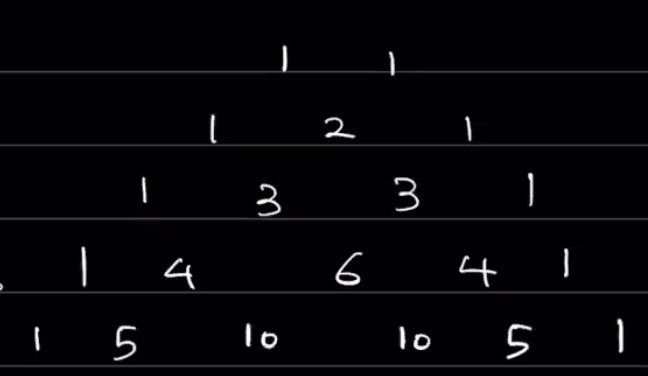 1 1
1 2 1
1 3 3 1
1 4 6 4 1
1 5 10 10 5 1